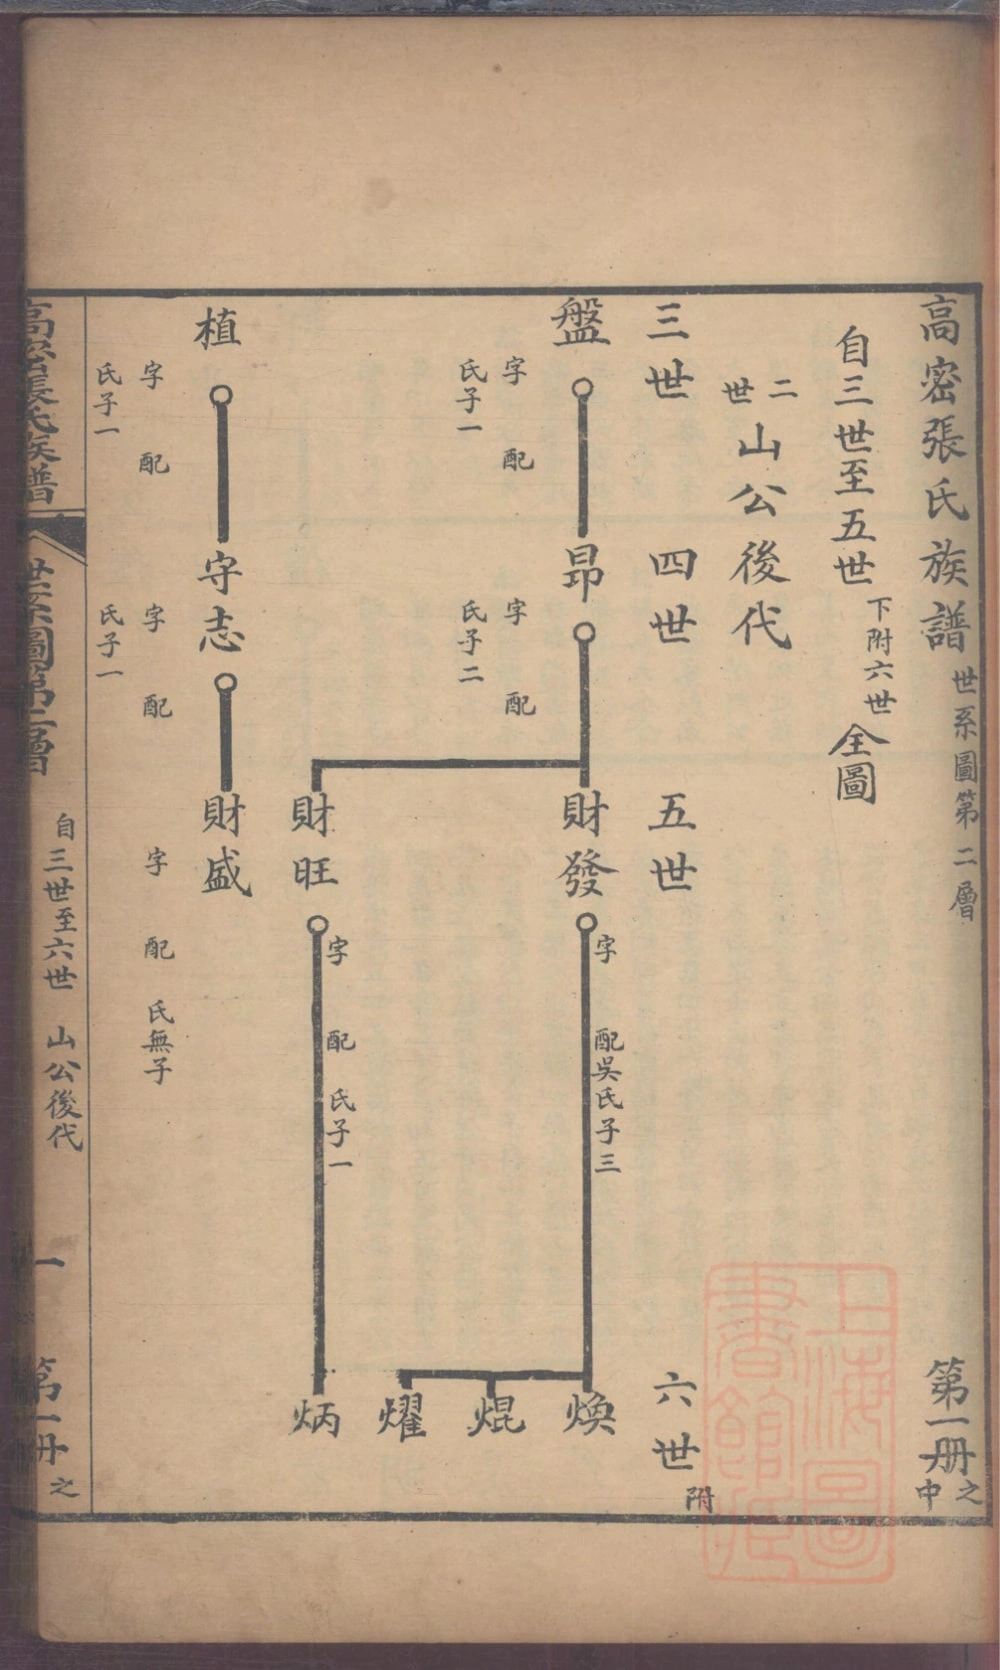 高密張氏族譜 世系圖第二層 第一册之中
自三世至五世 下附六世 全圖
二世 山公後代
三世 四世 五世 六世 附
盤
字 配
氏子一
昂
字 配
氏子二
財發
字 配吳氏子三
煥
焜
燿
財旺
字 配 氏子一
炳
植
字 配
氏子一
守志
字 配
氏子一
財盛
字 配 氏無子
高密張氏族譜 世系圖第二層 自三世至六世 山公後代 一 第一册之
上海圖書館藏